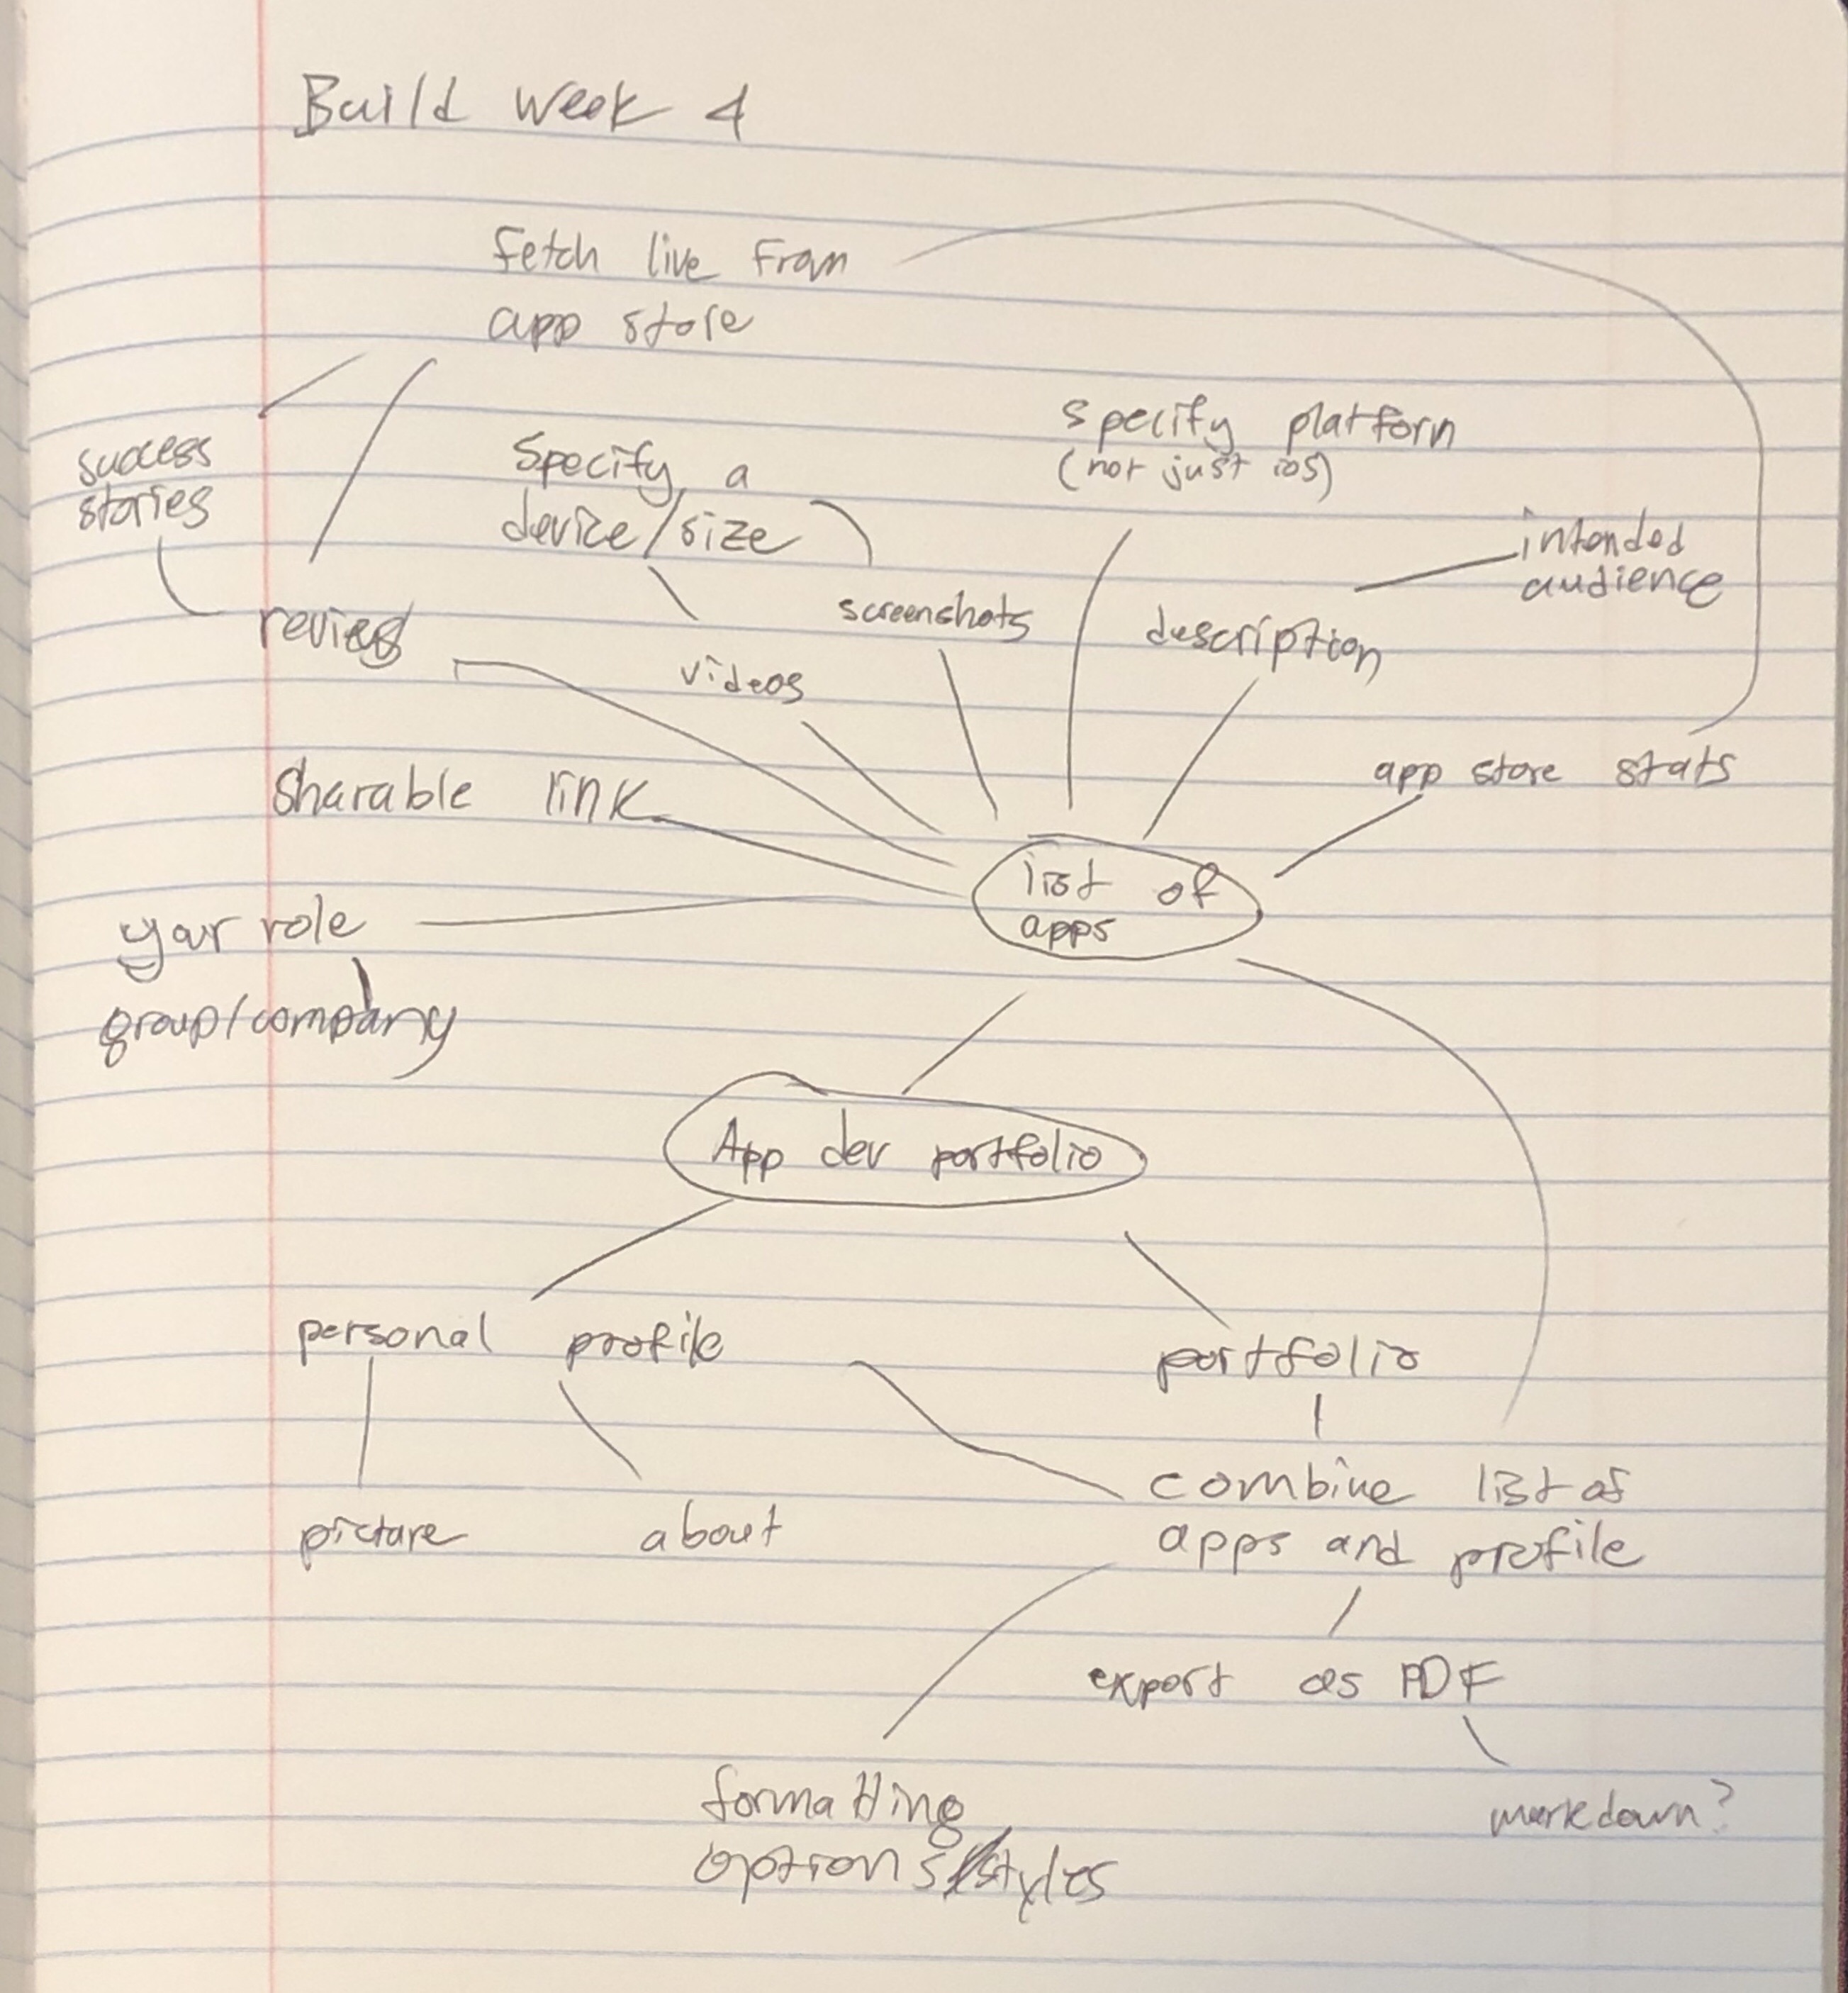 Build week 4
fetch live from
app store
success
stories
Specify a
device/size
specify platform
(not just ios)
intended
audience
reviews
videos
screenshots
description
sharable link
app store stats
list of
apps
your role
group/company
App dev portfolio
personal profile
portfolio
picture
about
combine list of
apps and profile
export as PDF
formatting
options/styles
markdown?